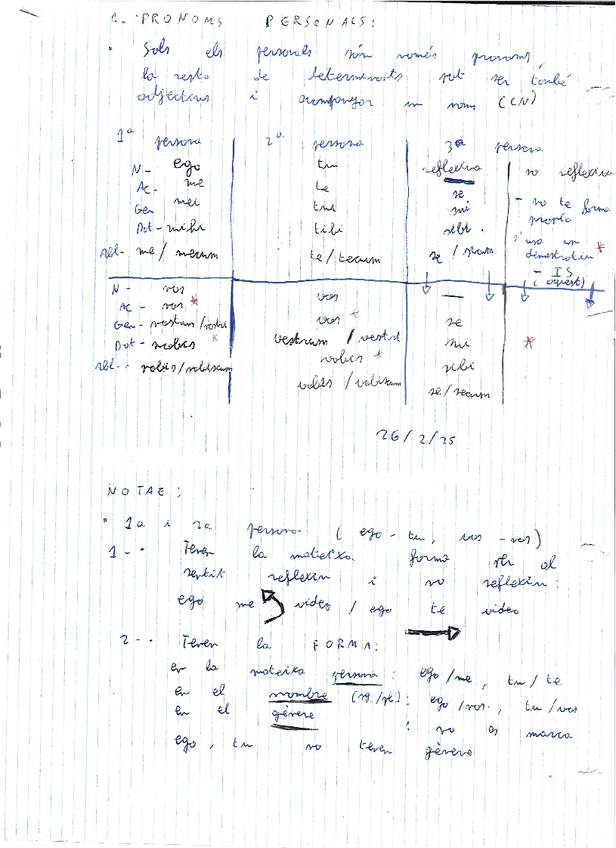 1. PRONOMS PERSONALS:
• Sols els personals són només pronoms,
la resta de determinants pot ser també
adjectius i acompanyar un nom (CN)
1ª persona 2ª persona 3ª persona
N- ego tu reflexiva no reflexiva
Ac- me te se - no te forma
Gen mei tui sui pròpia
Dat- mihi tibi sibi s'usa un *
Abl- me/mecum te/tecum se/secum demostratiu
- IS
(aquest)
N- nos vos —
Ac- nos * vos * se
Gen- nostrum/nostri vestrum/vestri sui *
Dat- nobis * vobis * sibi
Abl- nobis/nobiscum vobis/vobiscum se/secum
26/2/25
NOTAE:
• 1a i 2a persona (ego-tu, nos-vos)
1-• Tenen la mateixa forma per al
sentit reflexiu i no reflexiu:
ego me video / ego te video
2-- Tenen la FORMA:
en la mateixa persona: ego/me, tu/te
en el nombre (sg./pl.): ego/nos, tu/vos
en el gènere : no es marca
ego, tu no tenen gènere